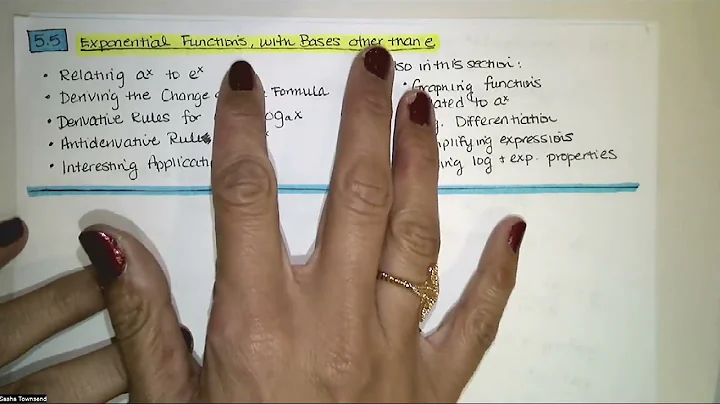 5.5 Exponential Functions, with Bases other than e
• Relating aˣ to eˣ
• Deriving the Change Formula
• Derivative Rules for logₐx
• Antiderivative Rules
• Interesting
in this section:
• Graphing functions
to aˣ
Differentiation
expressions
log + exp. properties
Sasha Townsend